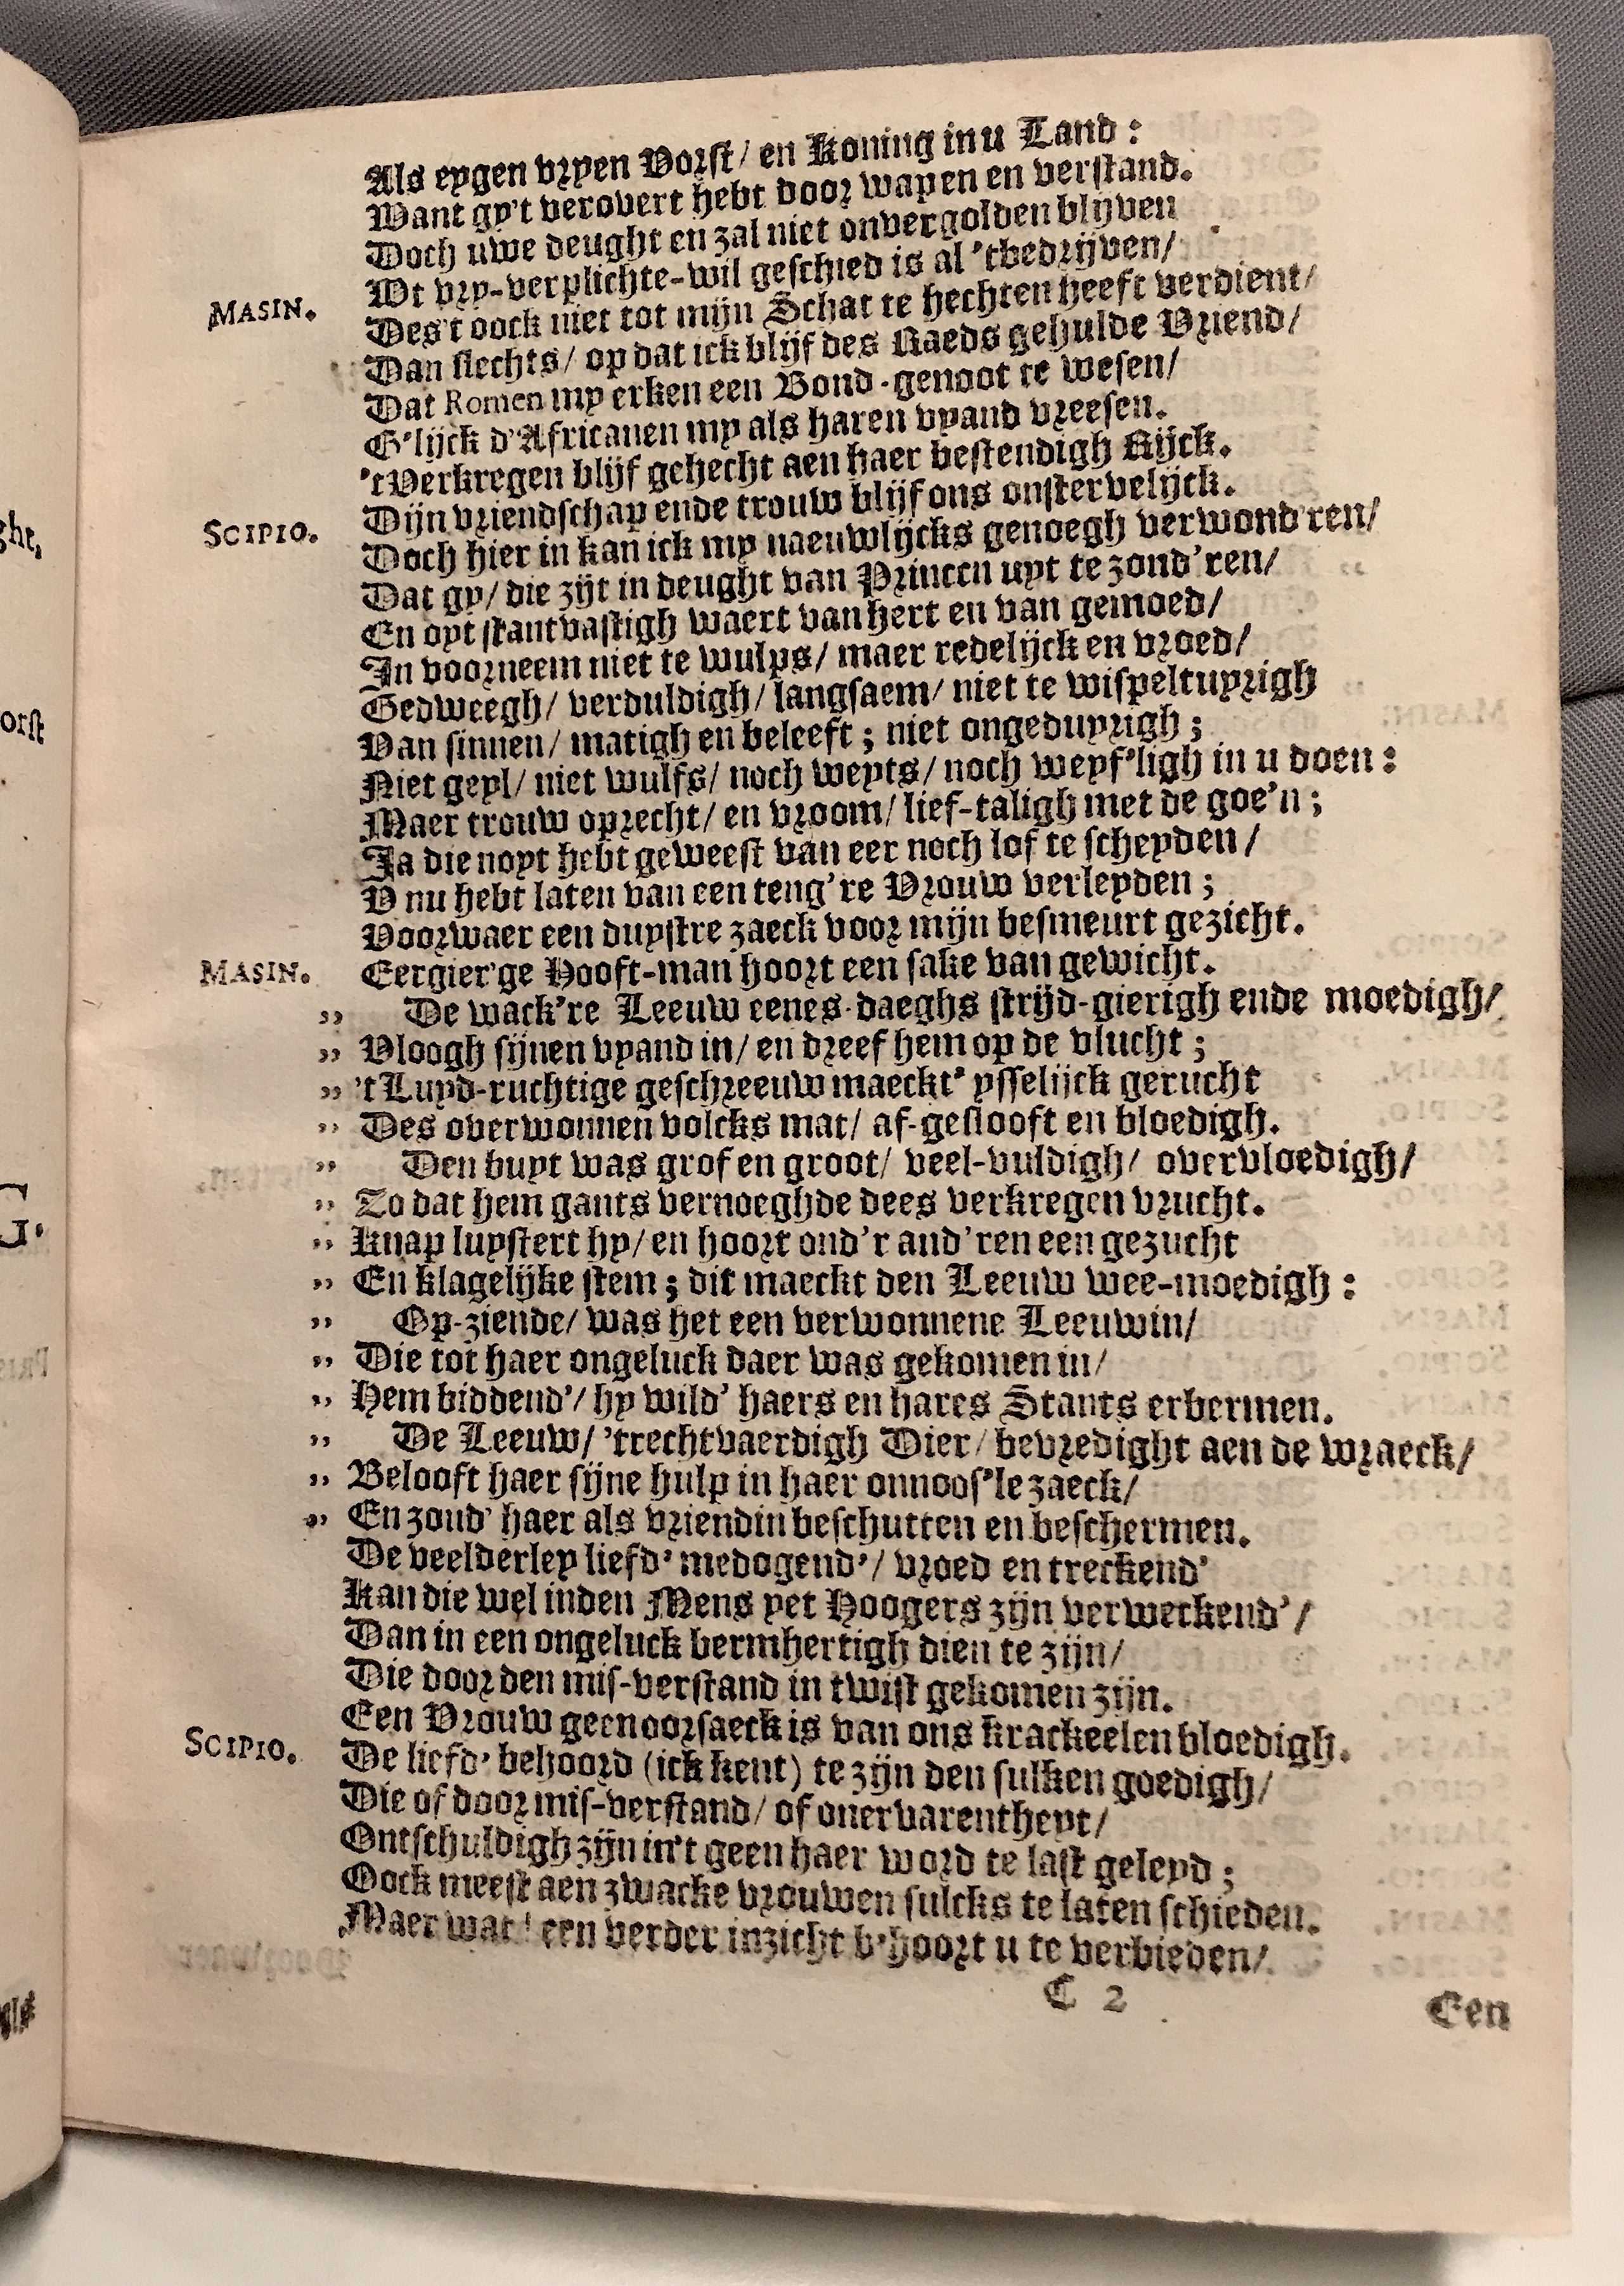 Als eygen vryen Vorst/ en Koning in u Land :
Want gy't verovert hebt door wapen en verstand.
Doch uwe deught en zal niet onvergolden blijven
MASIN. Wt vry-verplichte-wil geschied is al 'tbedrijven/
Des't oock niet tot mijn Schat te hechten heeft verdient/
Dan slechts/ op dat ick blijf des Raeds gehulde Vriend/
Dat Romen my erken een Bond-genoot te wesen/
G'lijck d'Africanen my als haren vyand vreesen.
't Verkregen blijf gehecht aen haer bestendigh Rijck.
SCIPIO. Dijn vriendschap ende trouw blijf ons onstervelijck.
Doch hier in kan ick my naeuwlijcks genoegh verwond'ren/
Dat gy/ die zijt in deught van Princen uyt te zond'ren/
En oyt stantvastigh waert van hert en van gemoed/
In voorneem niet te wulps/ maer redelijck en vroed/
Gedweegh/ verduldigh/ langsaem/ niet te wispeltuyrigh
Van sinnen/ matigh en beleeft ; niet ongeduyrigh ;
Niet geyl/ niet wulfs/ noch weyts/ noch weyf'ligh in u doen :
Maer trouw oprecht/ en vroom/ lief-taligh met de goe'n ;
Ja die noyt hebt geweest van eer noch lof te scheyden/
V nu hebt laten van een teng're Vrouw verleyden ;
Voorwaer een duystre zaeck voor mijn besmeurt gezicht.
MASIN. Eergier'ge Hooft-man hoort een sake van gewicht.
,, De wack're Leeuw eenes-daeghs strijd-gierigh ende moedigh/
,, Vloogh sijnen vyand in/ en dreef hem op de vlucht ;
,, 't Luyd-ruchtige geschreeuw maeckt' ysselijck gerucht
,, Des overwonnen volcks mat/ af-geslooft en bloedigh.
,, Den buyt was grof en groot/ veel-vuldigh/ overvloedigh/
,, Zo dat hem gants vernoeghde dees verkregen vrucht.
,, Knap luystert hy/ en hoort ond'r and'ren een gezucht
,, En klagelijke stem ; dit maeckt den Leeuw wee-moedigh :
,, Op-ziende/ was het een verwonnene Leeuwin/
,, Die tot haer ongeluck daer was gekomen in/
,, Hem biddend'/ hy wild' haers en hares Stants erbermen.
,, De Leeuw/ 'trechtvaerdigh Dier/ bevredight aen de wraeck/
,, Belooft haer sijne hulp in haer onnoos'le zaeck/
,, En zoud' haer als vriendin beschutten en beschermen.
De veelderley liefd' medogend'/ vroed en treckend'
Kan die wel inden Mens yet Hoogers zijn verweckend'/
Dan in een ongeluck bermhertigh dien te zijn/
Die door den mis-verstand in twist gekomen zijn.
Een Vrouw geen oorsaeck is van ons krackeelen bloedigh.
SCIPIO. De liefd' behoord (ick kent) te zijn den sulken goedigh/
Die of door mis-verstand/ of onervarentheyt/
Ontschuldigh zijn in't geen haer word te last geleyd ;
Oock meest aen zwacke vrouwen sulcks te laten schieden.
Maer wat! een verder inzicht b'hoort u te verbieden/
C 2
Een